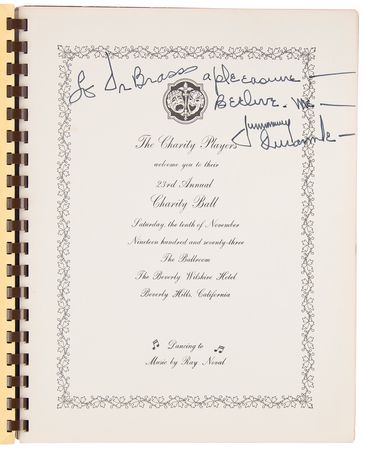 To Dr Brass a pleasure —
Beelive. me —
Jimmy
Durante —
The Charity Players
welcome you to their
23rd Annual
Charity Ball
Saturday, the tenth of November
Nineteen hundred and seventy-three
The Ballroom
The Beverly Wilshire Hotel
Beverly Hills, California
Dancing to
Music by Ray Noval